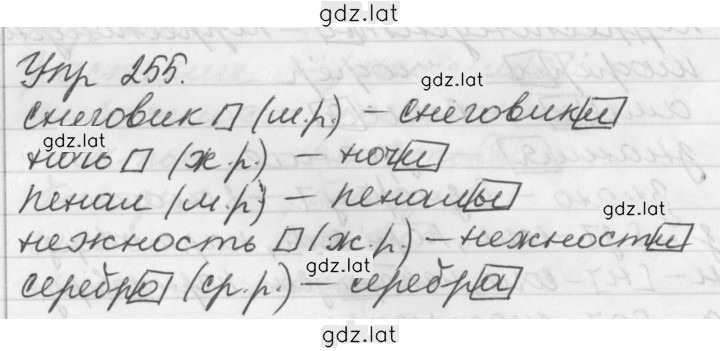 gdz.lat
Упр 255.
gdz.lat
снеговик (м.р.) – снеговики
gdz.lat
ночь (ж.р.) – ночи
пенал (м.р) – пеналы
gdz.lat
нежность (ж.р.) – нежности
gdz.lat
серебро (ср.р.) – серебра
gdz.lat